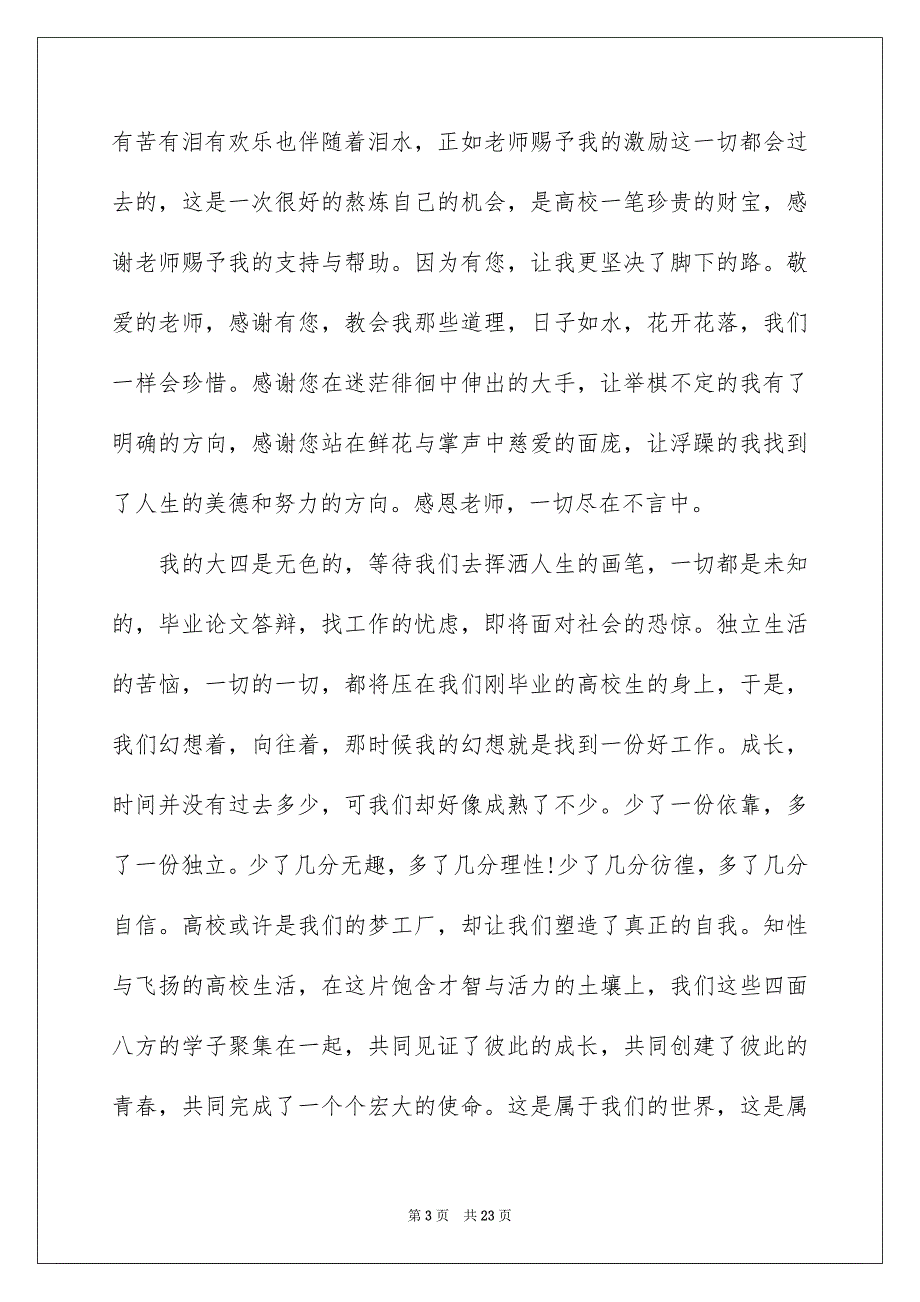 有苦有泪有欢乐也伴随着泪水，正如老师赐予我的激励这一切都会过
去的，这是一次很好的熬炼自己的机会，是高校一笔珍贵的财宝，感
谢老师赐予我的支持与帮助。因为有您，让我更坚决了脚下的路。敬
爱的老师，感谢有您，教会我那些道理，日子如水，花开花落，我们
一样会珍惜。感谢您在迷茫徘徊中伸出的大手，让举棋不定的我有了
明确的方向，感谢您站在鲜花与掌声中慈爱的面庞，让浮躁的我找到
了人生的美德和努力的方向。感恩老师，一切尽在不言中。
我的大四是无色的，等待我们去挥洒人生的画笔，一切都是未知
的，毕业论文答辩，找工作的忧虑，即将面对社会的恐惊。独立生活
的苦恼，一切的一切，都将压在我们刚毕业的高校生的身上，于是，
我们幻想着，向往着，那时候我的幻想就是找到一份好工作。成长，
时间并没有过去多少，可我们却好像成熟了不少。少了一份依靠，多
了一份独立。少了几分无趣，多了几分理性!少了几分彷徨，多了几分
自信。高校或许是我们的梦工厂，却让我们塑造了真正的自我。知性
与飞扬的高校生活，在这片饱含才智与活力的土壤上，我们这些四面
八方的学子聚集在一起，共同见证了彼此的成长，共同创建了彼此的
青春，共同完成了一个个宏大的使命。这是属于我们的世界，这是属
第 3 页 共 23 页